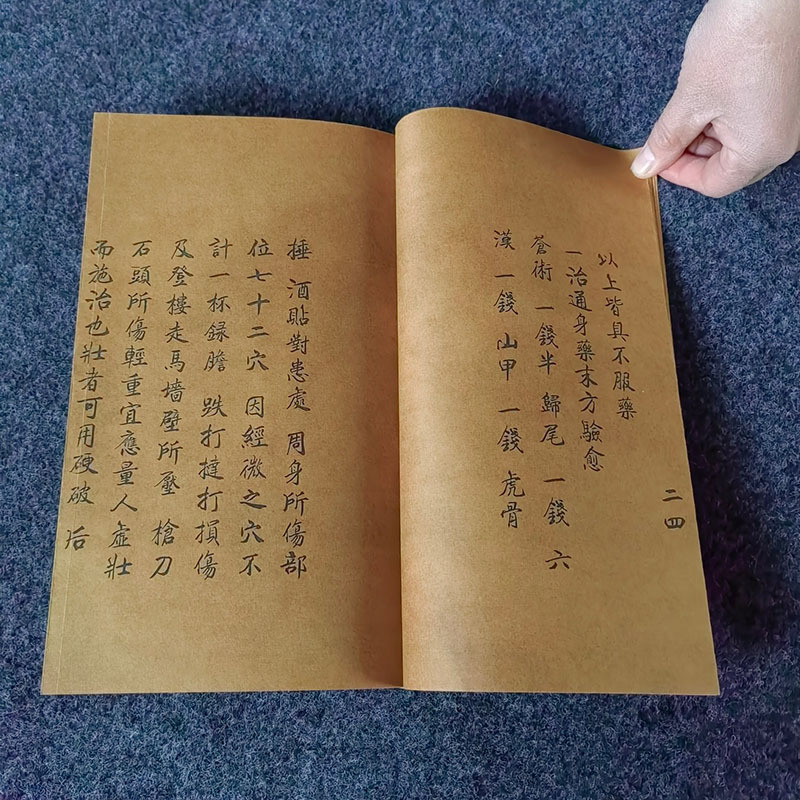 二四
以上皆具不服藥
一治通身藥末方驗愈
蒼術 一錢半 歸尾 一錢 六
漢 一錢 山甲 一錢 虎骨
捶 酒貼對患處 周身所傷部
位七十二穴 因經微之穴不
計一杯録膽 跌打撻打損傷
及登樓走馬墙壁所壓 槍刀
石頭所傷輕重宜應量人虛壯
而施治也壯者可用硬破 后